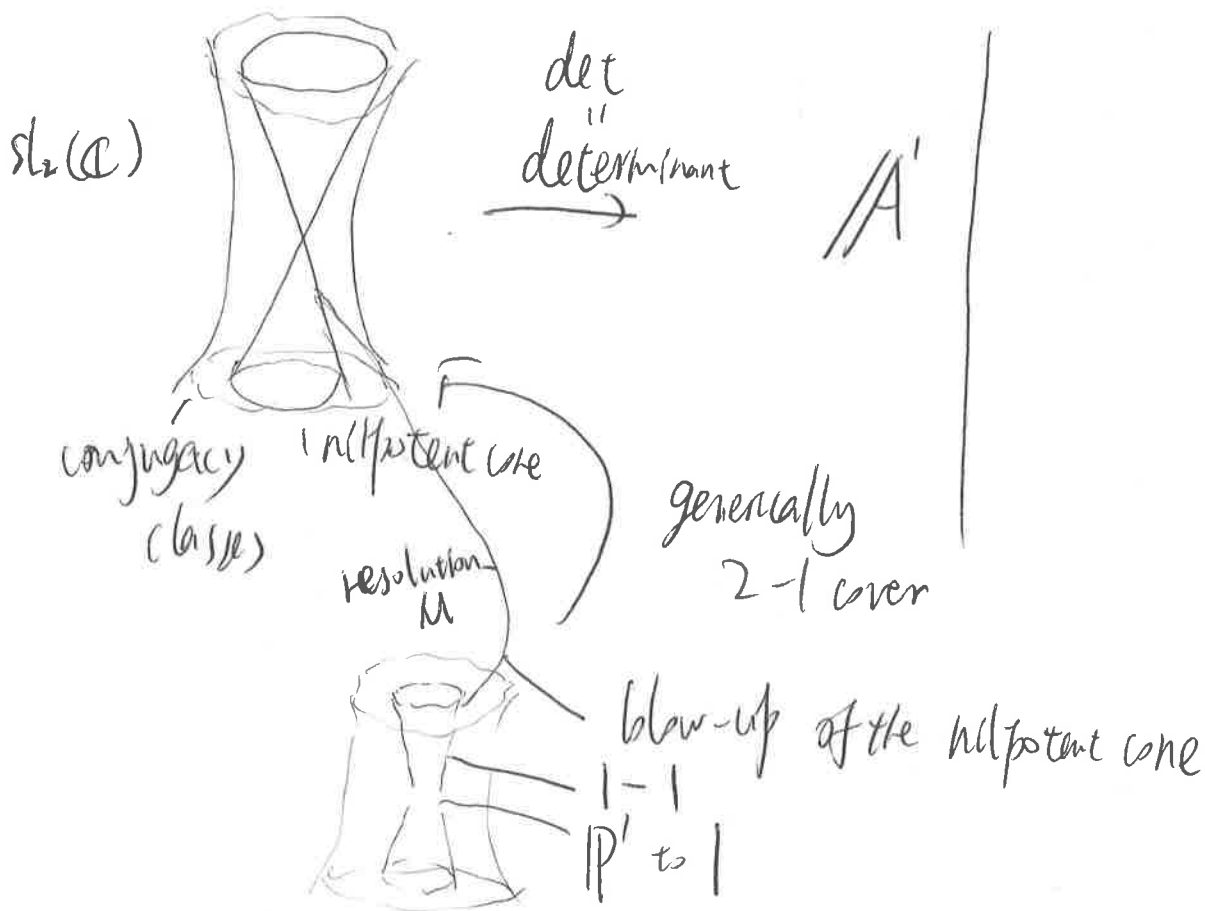 sl₂(ℂ)
det
"
determinant
𝔸¹
conjugacy
classes
nilpotent cone
generically
2-1 cover
resolution
μ
blow-up of the nilpotent cone
1-1
ℙ¹ to 1